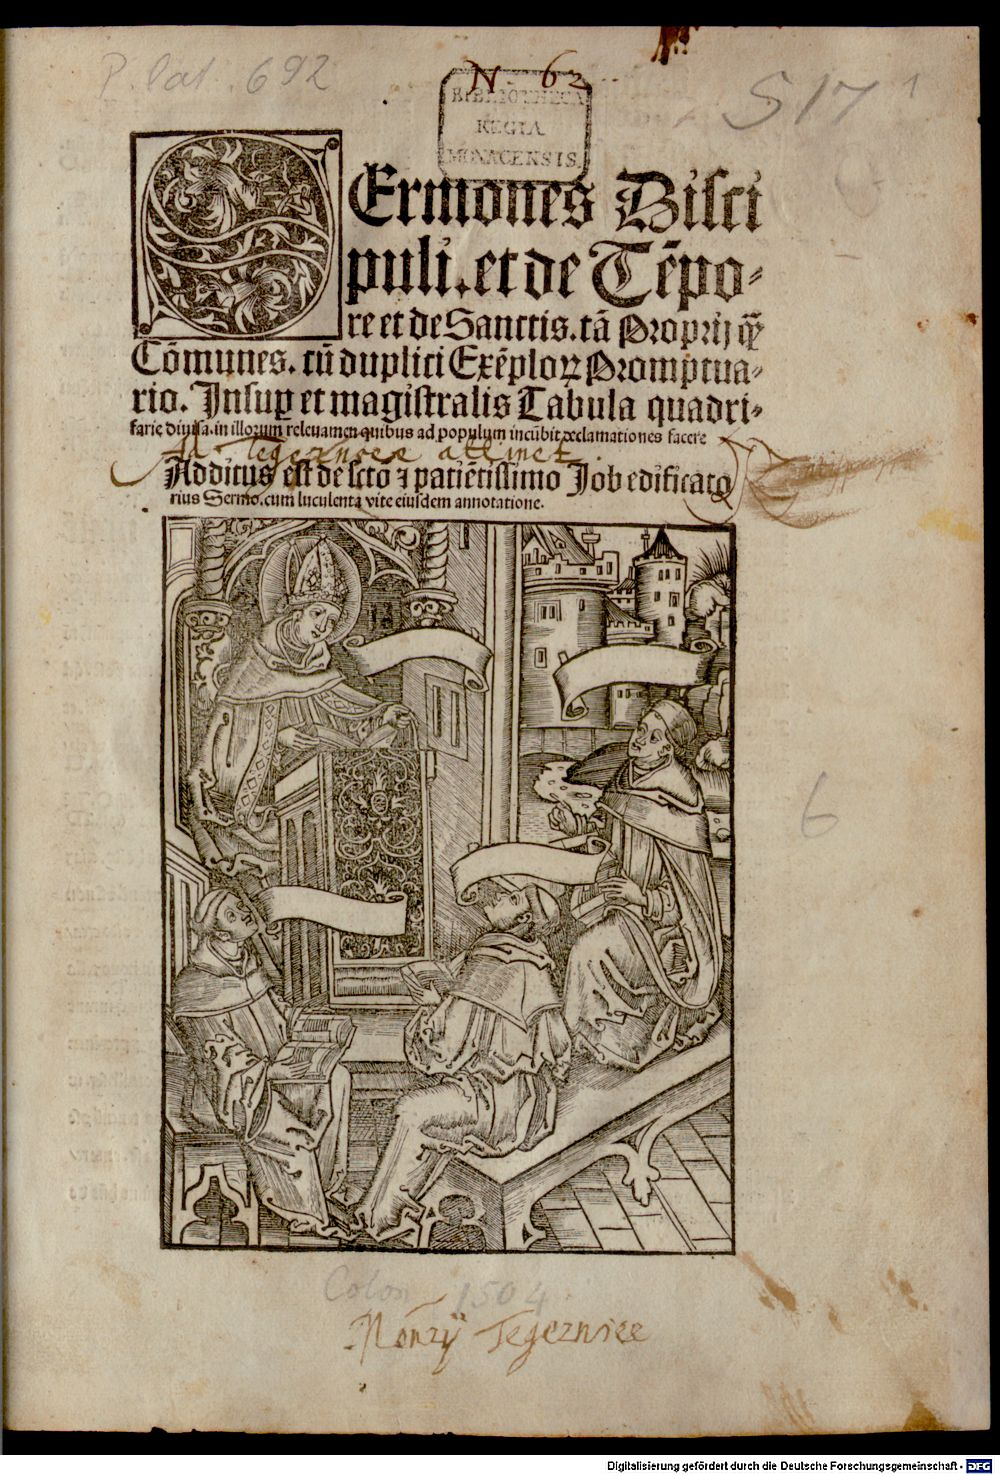 P. lat. 692
N. 62
BIBLIOTHECA
REGIA
MONACENSIS.
517 1
SErmones Disci
puli. et de Tēpo⸗
re et de Sanctis. tā Proprij qȝ
Cōmunes. cū duplici Exēploꝝ Promptua⸗
rio. Insuꝑ et magistralis Tabula quadri⸗
farie diuisa. in illorum releuamen quibus ad populum incūbit declamationes facere
Ad Tegernsee attinet
Additus est de scto ⁊ patiētissimo Job edificato
rius Sermo. cum luculenta vite eiusdem annotatione.
6
Colon 1504
Tegernsee
Digitalisierung gefördert durch die Deutsche Forschungsgemeinschaft - DFG